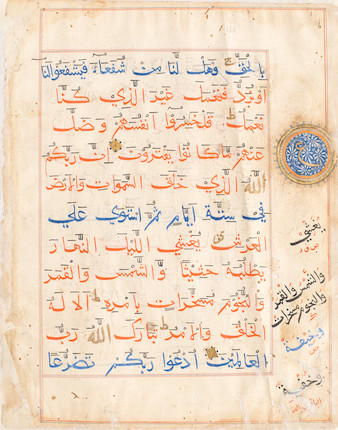 بالحق فهل لنا من شفعاء فيشفعوا لنا
أو نرد فنعمل غير الذي كنا
نعمل قد خسروا أنفسهم وضل
عنهم ما كانوا يفترون إن ربكم
الله الذي خلق السموات والأرض
في ستة أيام ثم استوى على
العرش يغشي الليل النهار
يطلبه حثيثا والشمس والقمر
والنجوم مسخرات بأمره ألا له
الخلق والأمر تبارك الله رب
العالمين ادعوا ربكم تضرعا
يغشي
والشمس والقمر
والنجوم مسخرات
وخيفة
وخفية